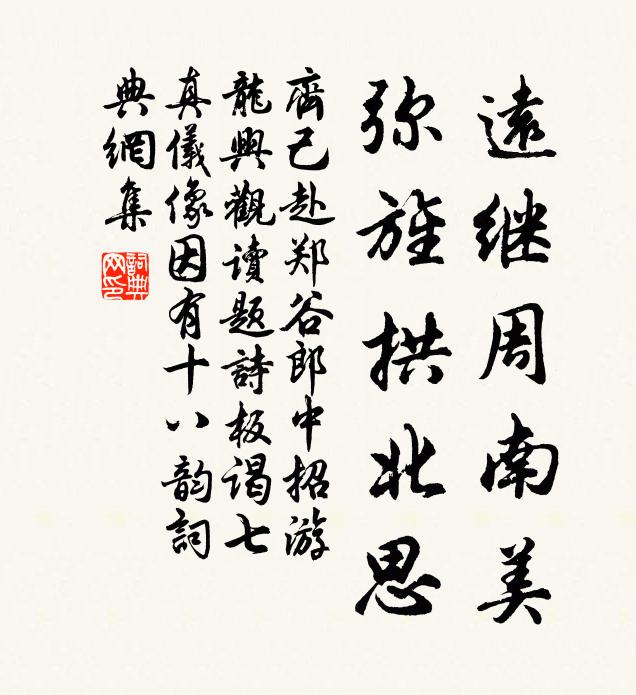 遠继周南美
弥旌拱北思
齊己赴郑谷郎中招游
龍興觀讀题詩板谒七
真儀像因有十八韵詞
典網集
詞典网印